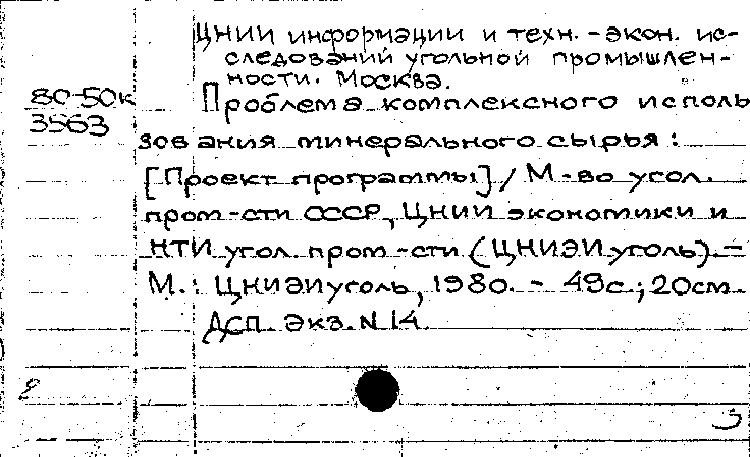 ЦНИИ информации и техн.-экон. ис-
следований угольной промышлен-
ности. Москва.
80-50к
3563
Проблема комплексного исполь
зования минерального сырья:
[Проект программы] / М-во угол.
пром-сти СССР, ЦНИИ экономики и
НТИ угол. пром-сти (ЦНИЭИуголь). -
М.: ЦНИЭИуголь, 1980. - 49с.; 20см.
ДСП. Экз. N 14.